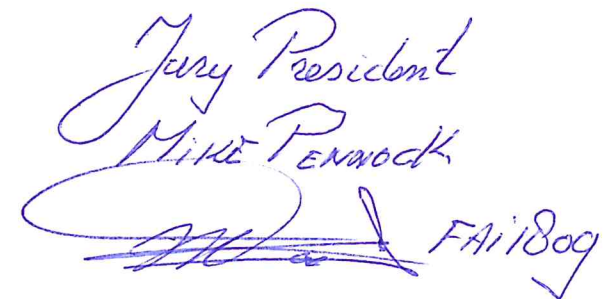 Jury President
MIKE PENNOCK
FAI 1809